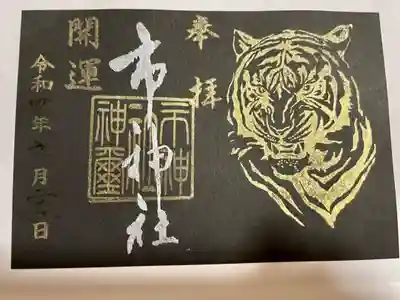 奉拝
市神社
市神社神璽
開運
令和四年 月 日